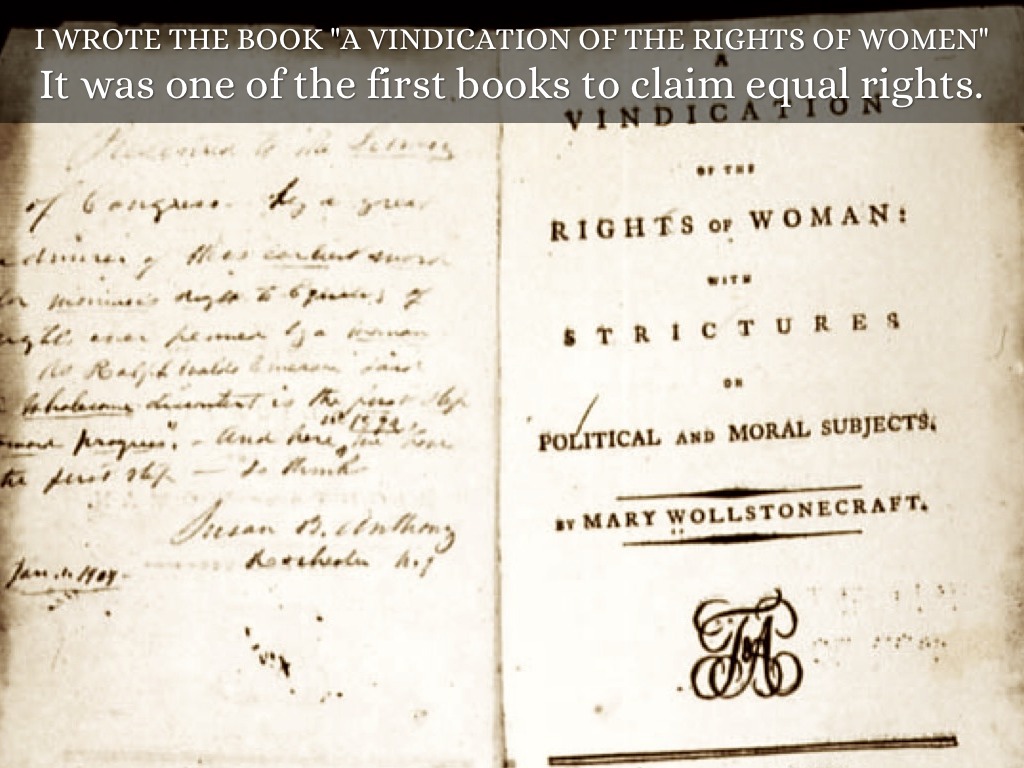 I WROTE THE BOOK "A VINDICATION OF THE RIGHTS OF WOMEN"
It was one of the first books to claim equal rights.
Presented to the Library
of Congress by a great
admirer of this earliest work
for woman's right to Equality of
rights ever penned by a woman
As Ralph Waldo Emerson said
wholesome discontent is the first step
progress". - And here, in 1792, we have
the first step - So thinks
Susan B. Anthony
Rochester N.Y
Jan. 1, 1904.
A
VINDICATION
OF THE
RIGHTS OF WOMAN:
WITH
STRICTURES
ON
POLITICAL AND MORAL SUBJECTS.
BY MARY WOLLSTONECRAFT.